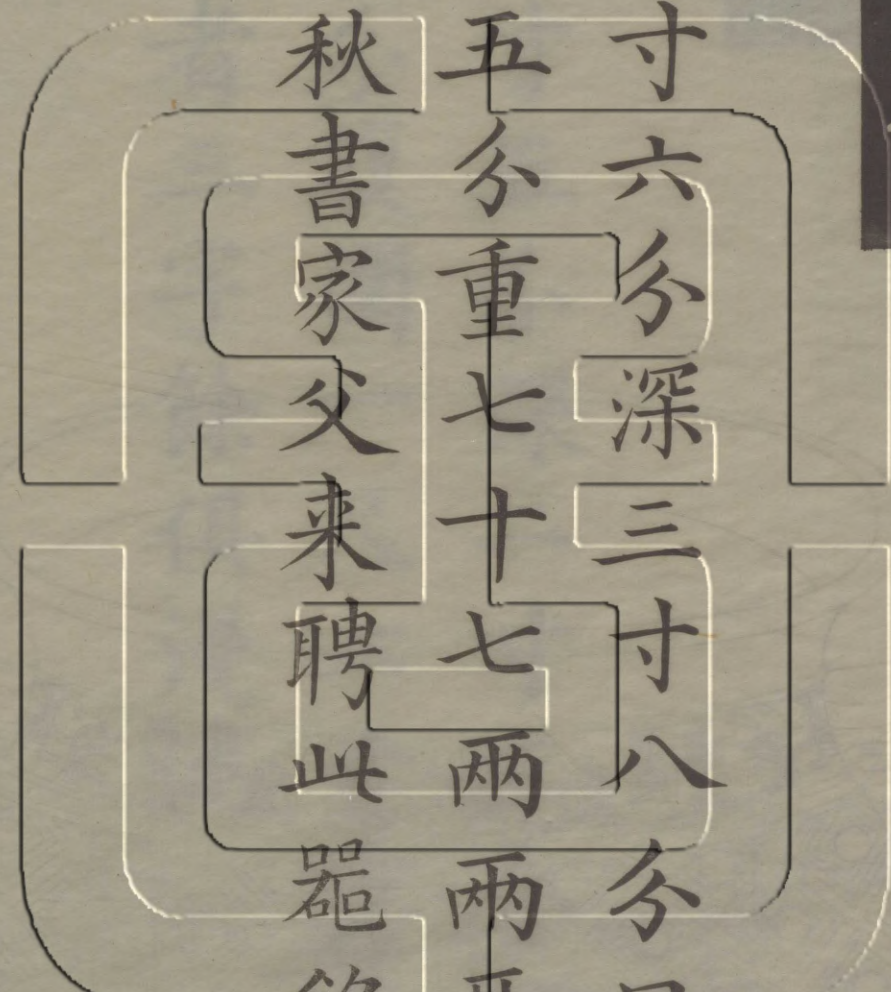 寸六分深三寸八分
五分重七十七兩兩
秋書家父来聘此器